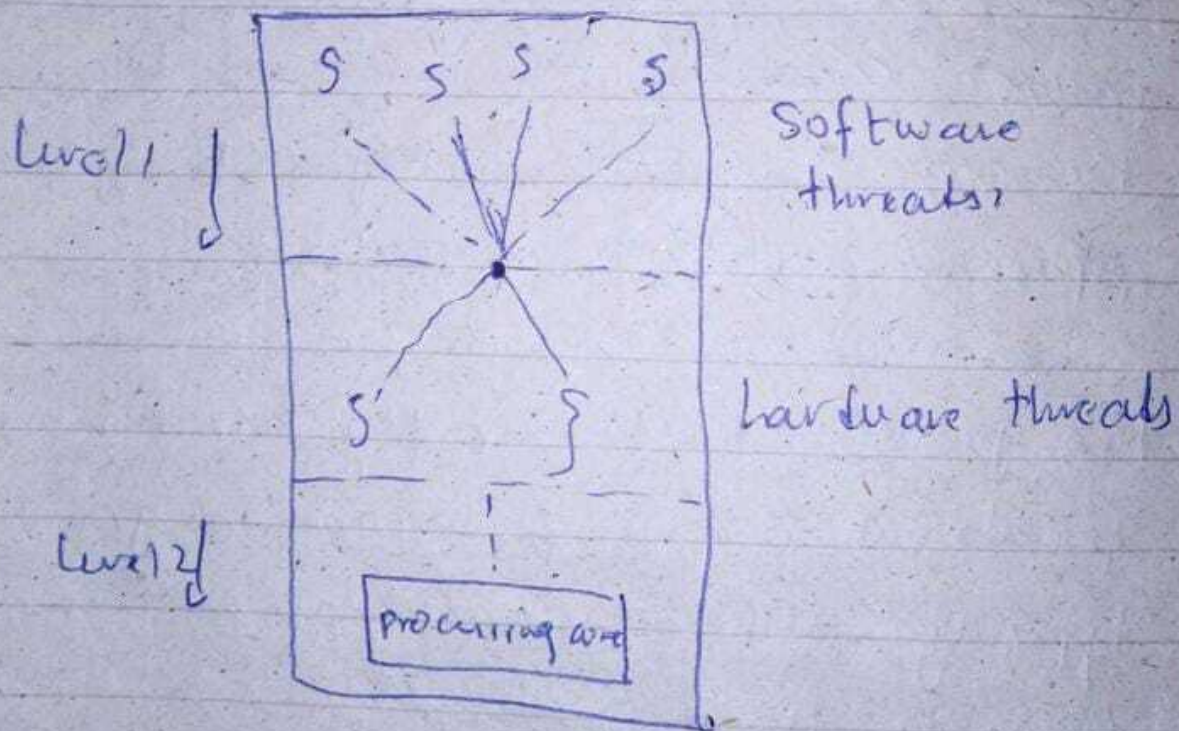 S S S S
level 1
Software
threats
S S
hardware threads
level 2
processing core